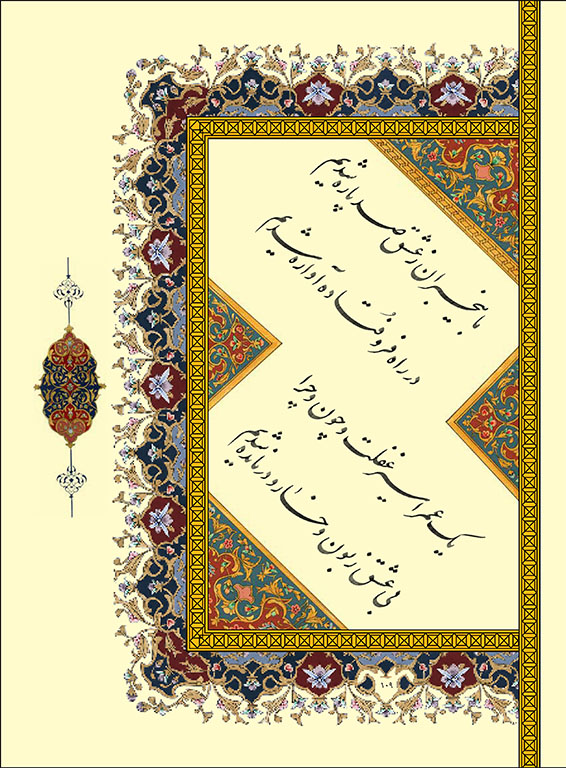 ما بیخبران ز عشق صد پاره شدیم
در راه فرو فتاده آواره شدیم
یک عمر اسیر غفلت و چون و چرا
بی عشق زبون و خار و درمانده شدیم
۱۰۹